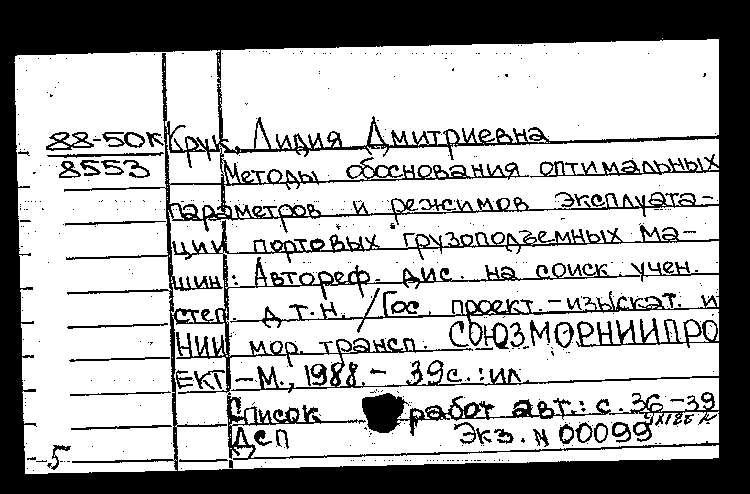 88-50К
8553
Крук, Лидия Дмитриевна
Методы обоснования оптимальных
параметров и режимов эксплуата-
ции портовых грузоподъемных ма-
шин: Автореф. дис. на соиск. учен.
степ. д.т.н. / Гос. проект.-изыскат. и
НИИ мор. трансп. СОЮЗМОРНИИПРО
ЕКТ. - М., 1988. - 39с.: ил.
Список работ авт.: с. 36-39
Дсп Экз. N 00099
5